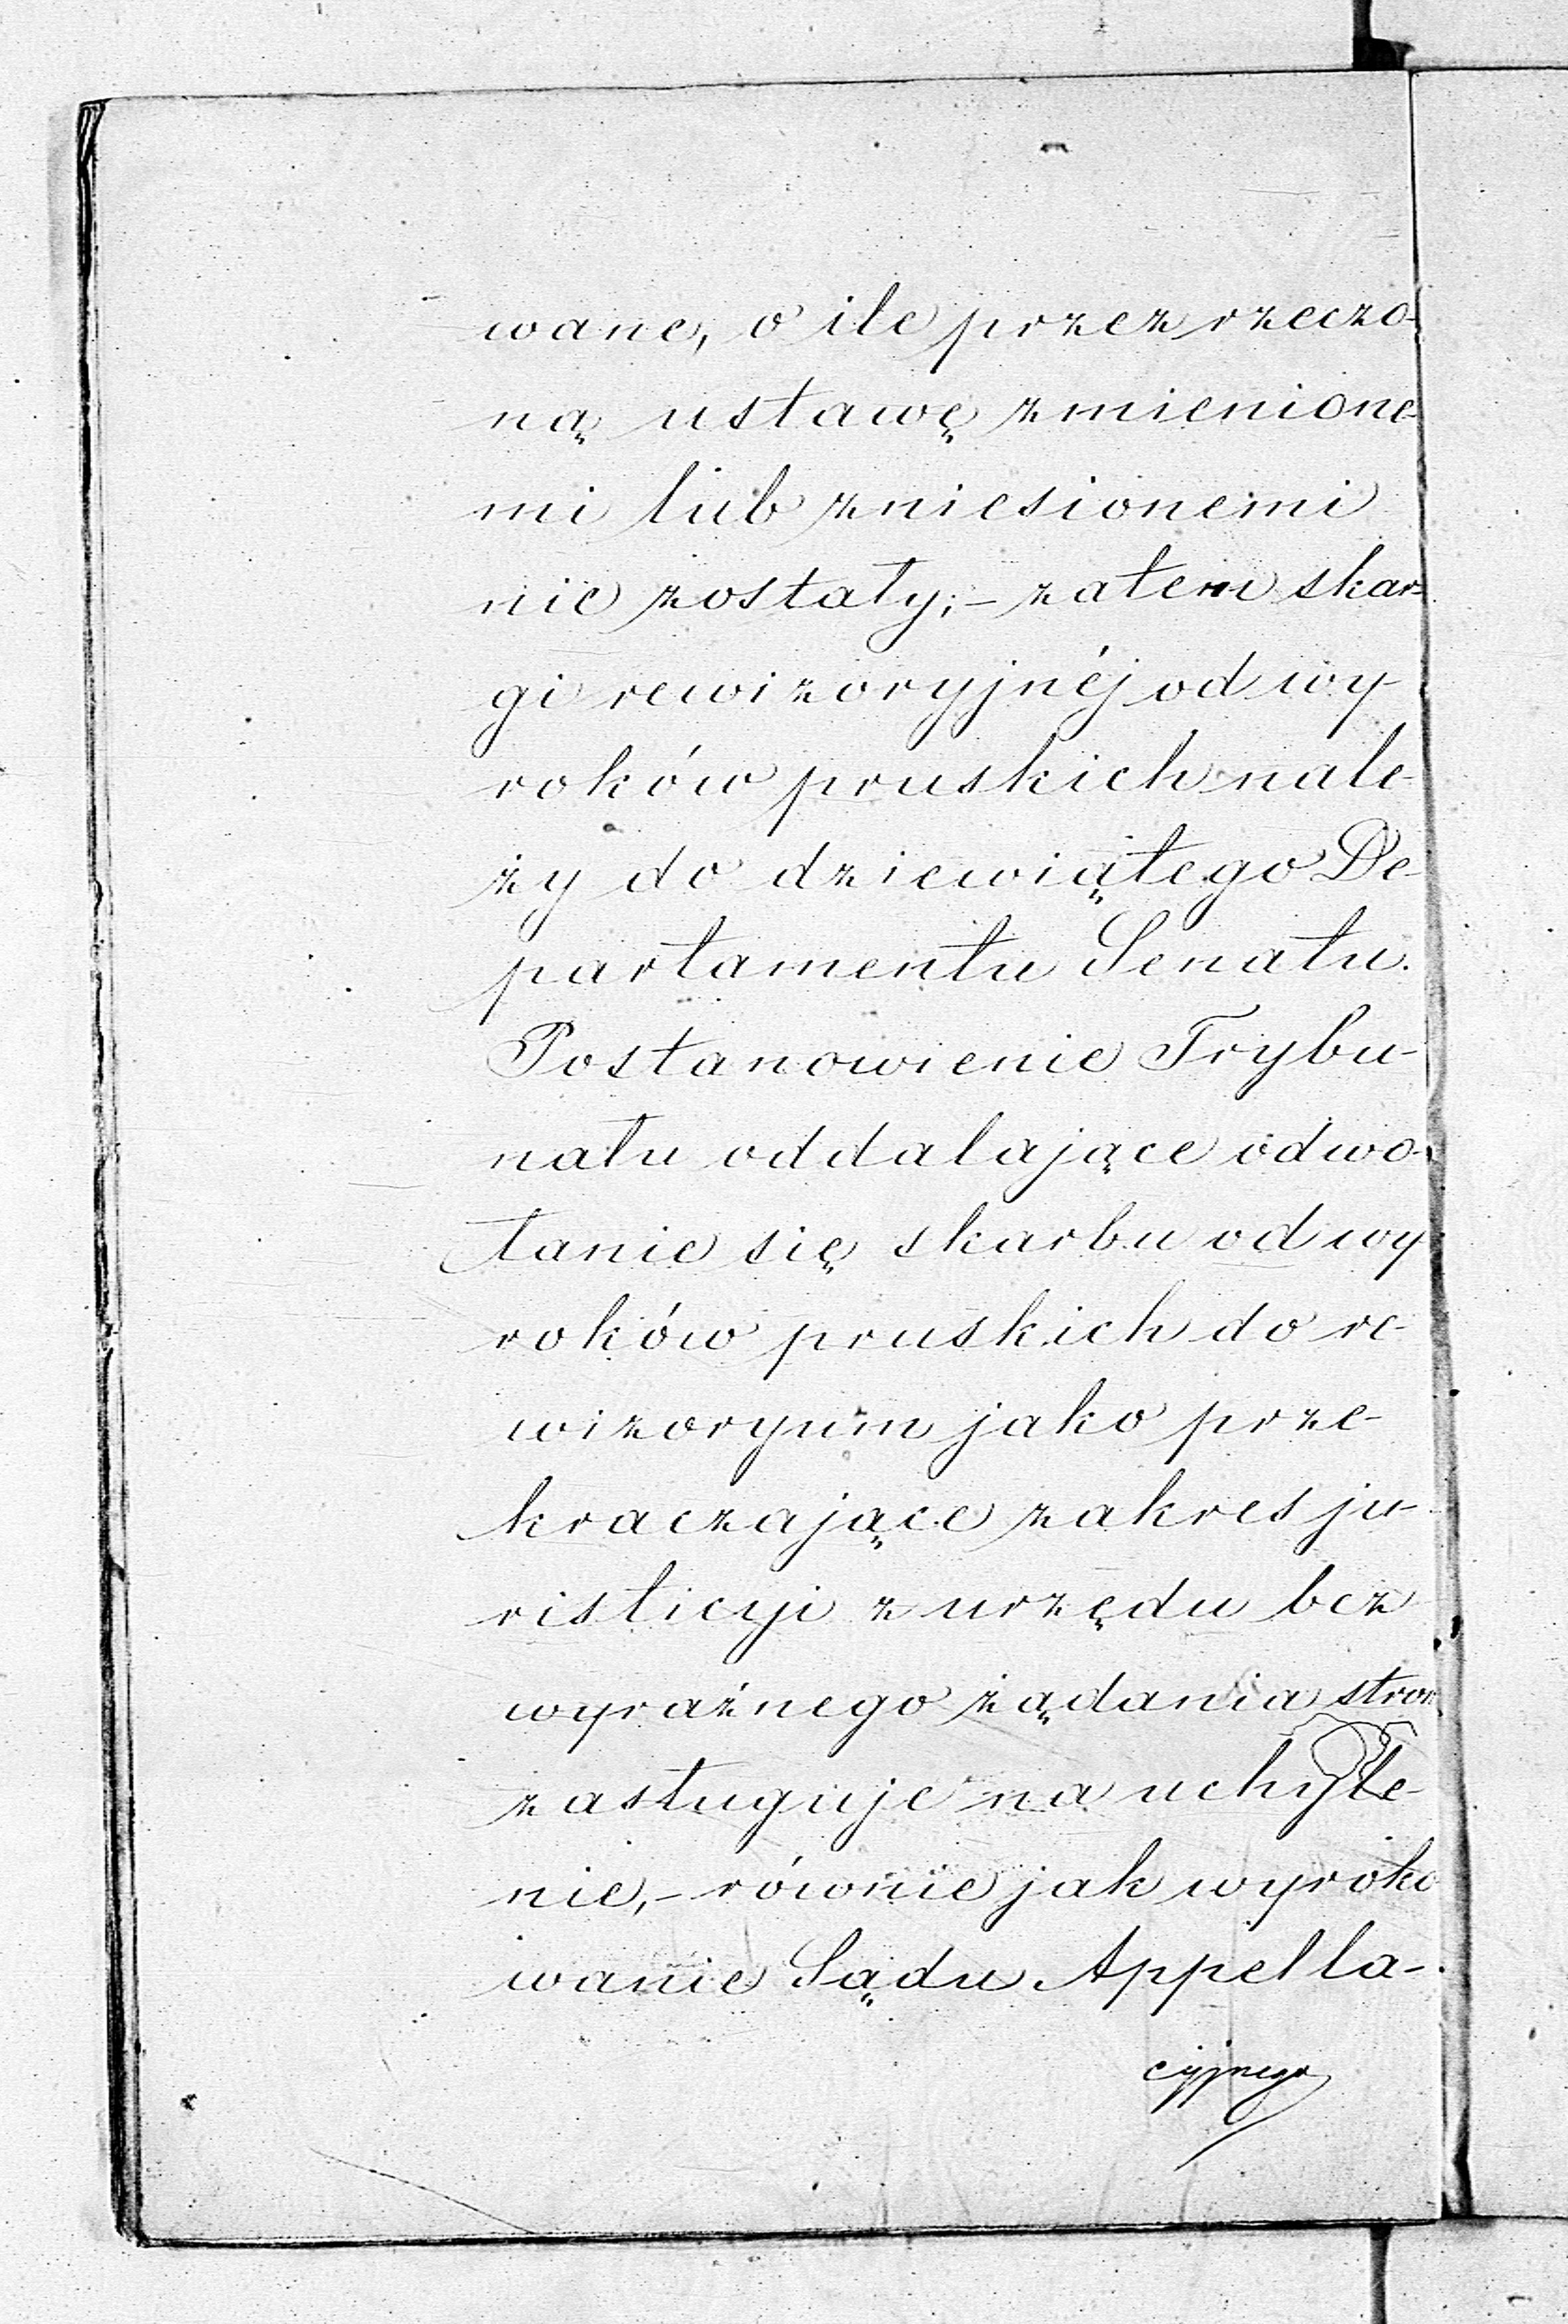 wane, o ile przez rzeczo-
ną ustawę zmienione-
mi lub zniesionemi
nie zostały; – zatem skar-
gi rewizoryjnéj od wy-
roków pruskich nale-
ży do dziewiątego De-
partamentu Senatu.
Postanowienie Trybu-
nału oddalające odwo-
łanie się skarbu od wy-
roków pruskich do re-
wizoryum jako prze-
kraczające zakres ju-
risticyi z urzędu bez
wyraźnego żądania stron
zasługuje na uchyle-
nie, – równie jak wyroko
wanie Sądu Appella-
cyjnego